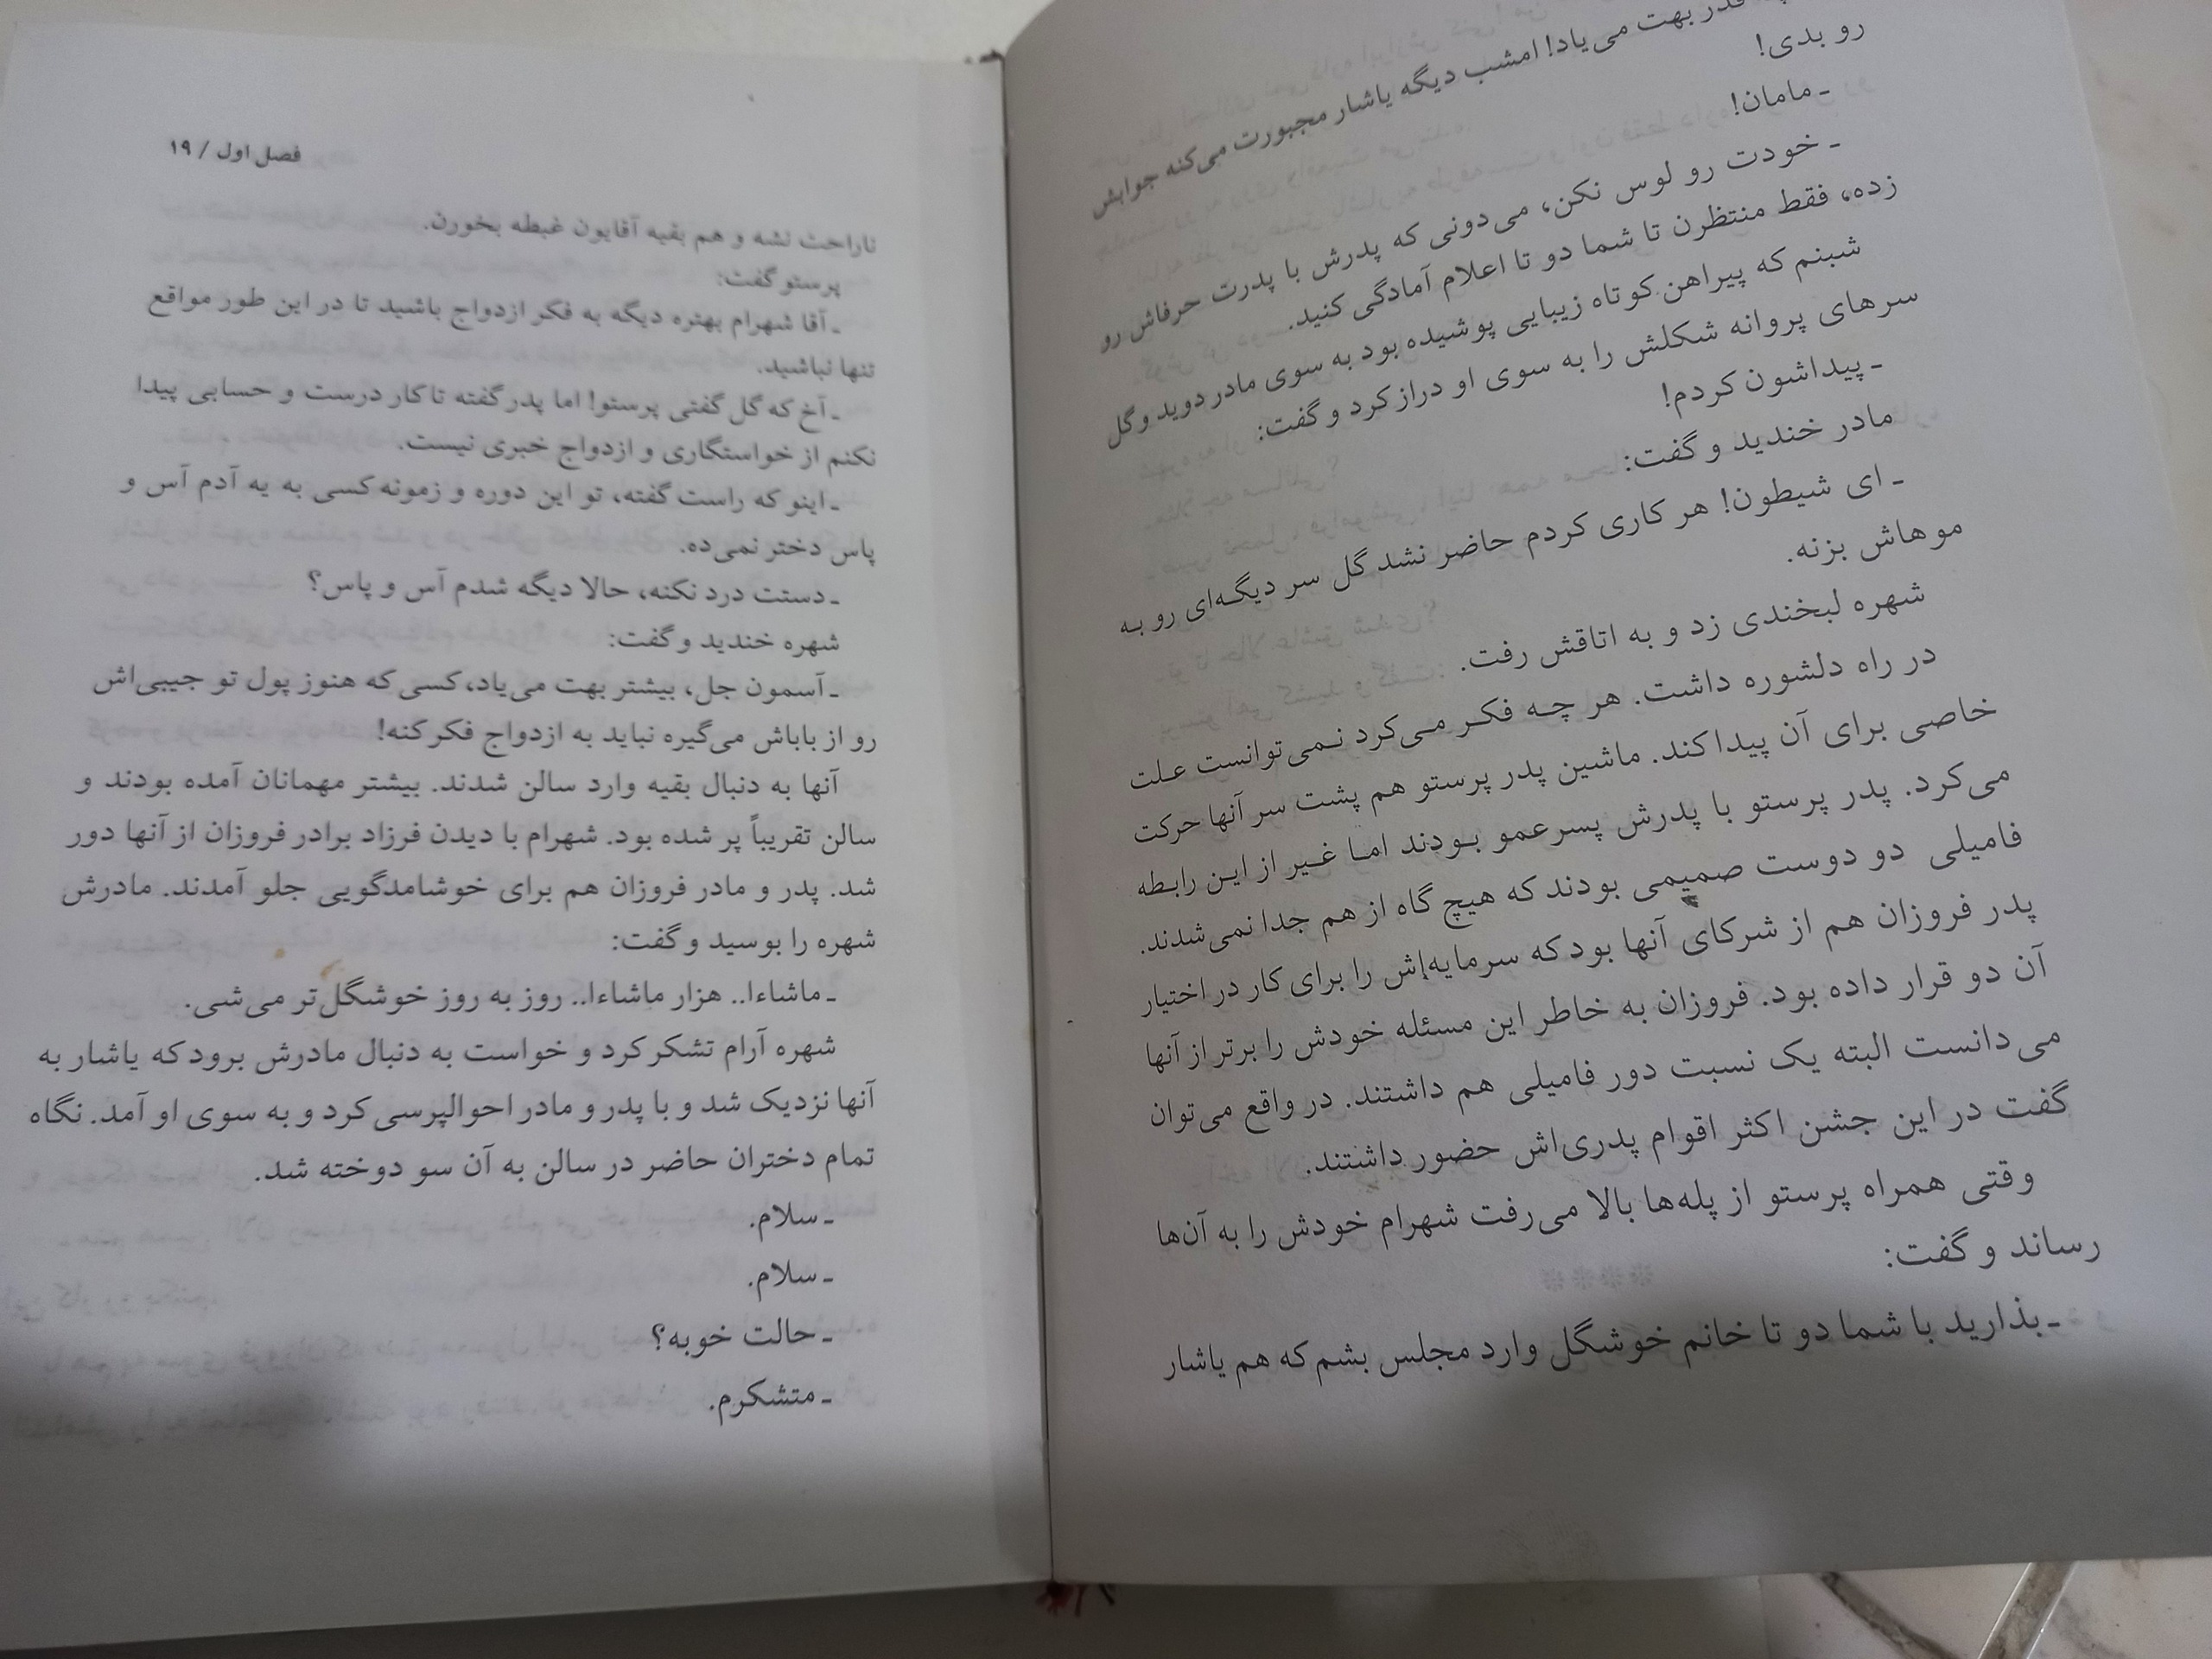 قدر بهت می‌یاد! امشب دیگه یاشار مجبورت می‌کنه جوابش
رو بدی!
ـ مامان!
ـ خودت رو لوس نکن، می‌دونی که پدرش با پدرت حرفاش رو
زده، فقط منتظرن تا شما دو تا اعلام آمادگی کنید.
شبنم که پیراهن کوتاه زیبایی پوشیده بود به سوی مادر دوید و گل
سرهای پروانه شکلش را به سوی او دراز کرد و گفت:
ـ پیداشون کردم!
مادر خندید و گفت:
ـ ای شیطون! هر کاری کردم حاضر نشد گل سر دیگه‌ای رو به
موهاش بزنه.
شهره لبخندی زد و به اتاقش رفت.
در راه دلشوره داشت. هر چه فکر می‌کرد نمی‌توانست علت
خاصی برای آن پیدا کند. ماشین پدر پرستو هم پشت سر آنها حرکت
می‌کرد. پدر پرستو با پدرش پسرعمو بودند اما غیر از این رابطه
فامیلی دو دوست صمیمی بودند که هیچ گاه از هم جدا نمی‌شدند.
پدر فروزان هم از شرکای آنها بود که سرمایه‌اش را برای کار در اختیار
آن دو قرار داده بود. فروزان به خاطر این مسئله خودش را برتر از آنها
می‌دانست البته یک نسبت دور فامیلی هم داشتند. در واقع می‌توان
گفت در این جشن اکثر اقوام پدری‌اش حضور داشتند.
وقتی همراه پرستو از پله‌ها بالا می‌رفت شهرام خودش را به آن‌ها
رساند و گفت:
ـ بذارید با شما دو تا خانم خوشگل وارد مجلس بشم که هم یاشار
فصل اول / ۱۹
ناراحت نشه و هم بقیه آقایون غبطه بخورن.
پرستو گفت:
ـ آقا شهرام بهتره دیگه به فکر ازدواج باشید تا در این طور مواقع
تنها نباشید.
ـ آخ که گل گفتی پرستو! اما پدر گفته تا کار درست و حسابی پیدا
نکنم از خواستگاری و ازدواج خبری نیست.
ـ اینو که راست گفته، تو این دوره و زمونه کسی به یه آدم آس و
پاس دختر نمی‌ده.
ـ دستت درد نکنه، حالا دیگه شدم آس و پاس؟
شهره خندید و گفت:
ـ آسمون جل، بیشتر بهت می‌یاد، کسی که هنوز پول تو جیبی‌اش
رو از باباش می‌گیره نباید به ازدواج فکر کنه!
آنها به دنبال بقیه وارد سالن شدند. بیشتر مهمانان آمده بودند و
سالن تقریباً پر شده بود. شهرام با دیدن فرزاد برادر فروزان از آنها دور
شد. پدر و مادر فروزان هم برای خوشامدگویی جلو آمدند. مادرش
شهره را بوسید و گفت:
ـ ماشاءا.. هزار ماشاءا.. روز به روز خوشگل‌تر می‌شی.
شهره آرام تشکر کرد و خواست به دنبال مادرش برود که یاشار به
آنها نزدیک شد و با پدر و مادر احوالپرسی کرد و به سوی او آمد. نگاه
تمام دختران حاضر در سالن به آن سو دوخته شد.
ـ سلام.
ـ سلام.
ـ حالت خوبه؟
ـ متشکرم.